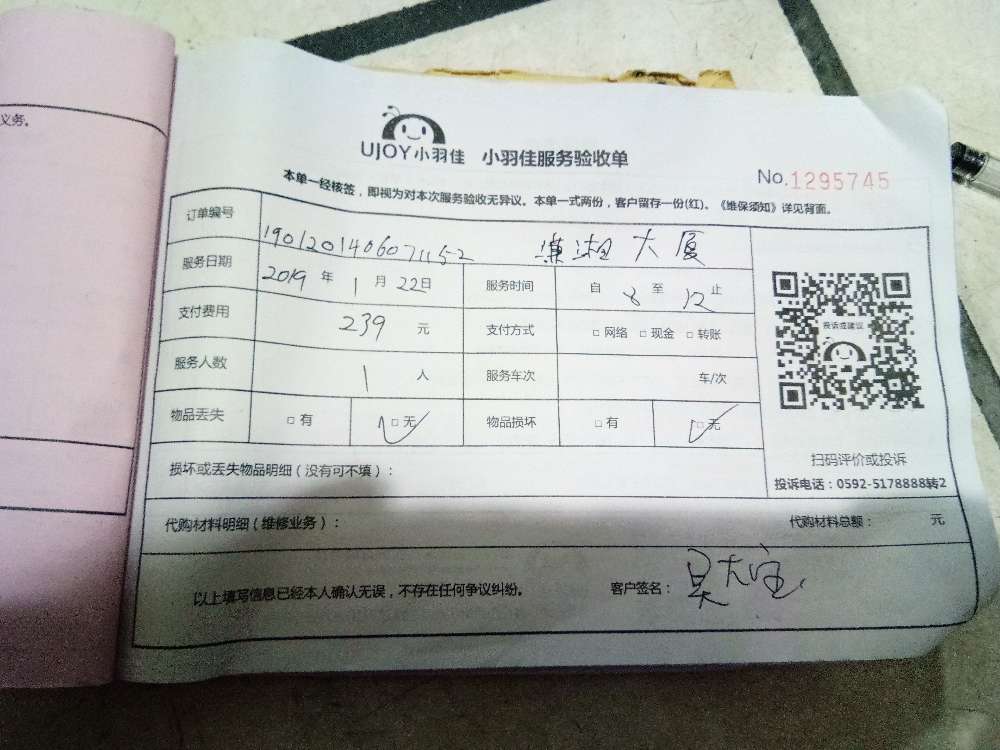 义务。
UJOY小羽佳 小羽佳服务验收单
No.1295745
本单一经核签，即视为对本次服务验收无异议。本单一式两份，客户留存一份(红)。《维保须知》详见背面。
订单编号 19012014060711152 潇湘大厦
服务日期 2019 年 1 月 22 日 服务时间 自 8 至 12 止
支付费用 239 元 支付方式 □ 网络 □ 现金 □ 转账
服务人数 1 人 服务车次 车/次
物品丢失 □ 有 □ 无 物品损坏 □ 有 □ 无
投诉或建议
扫码评价或投诉
投诉电话：0592-5178888转2
损坏或丢失物品明细（没有可不填）：
代购材料明细（维修业务）： 代购材料总额： 元
以上填写信息已经本人确认无误，不存在任何争议纠纷。 客户签名：